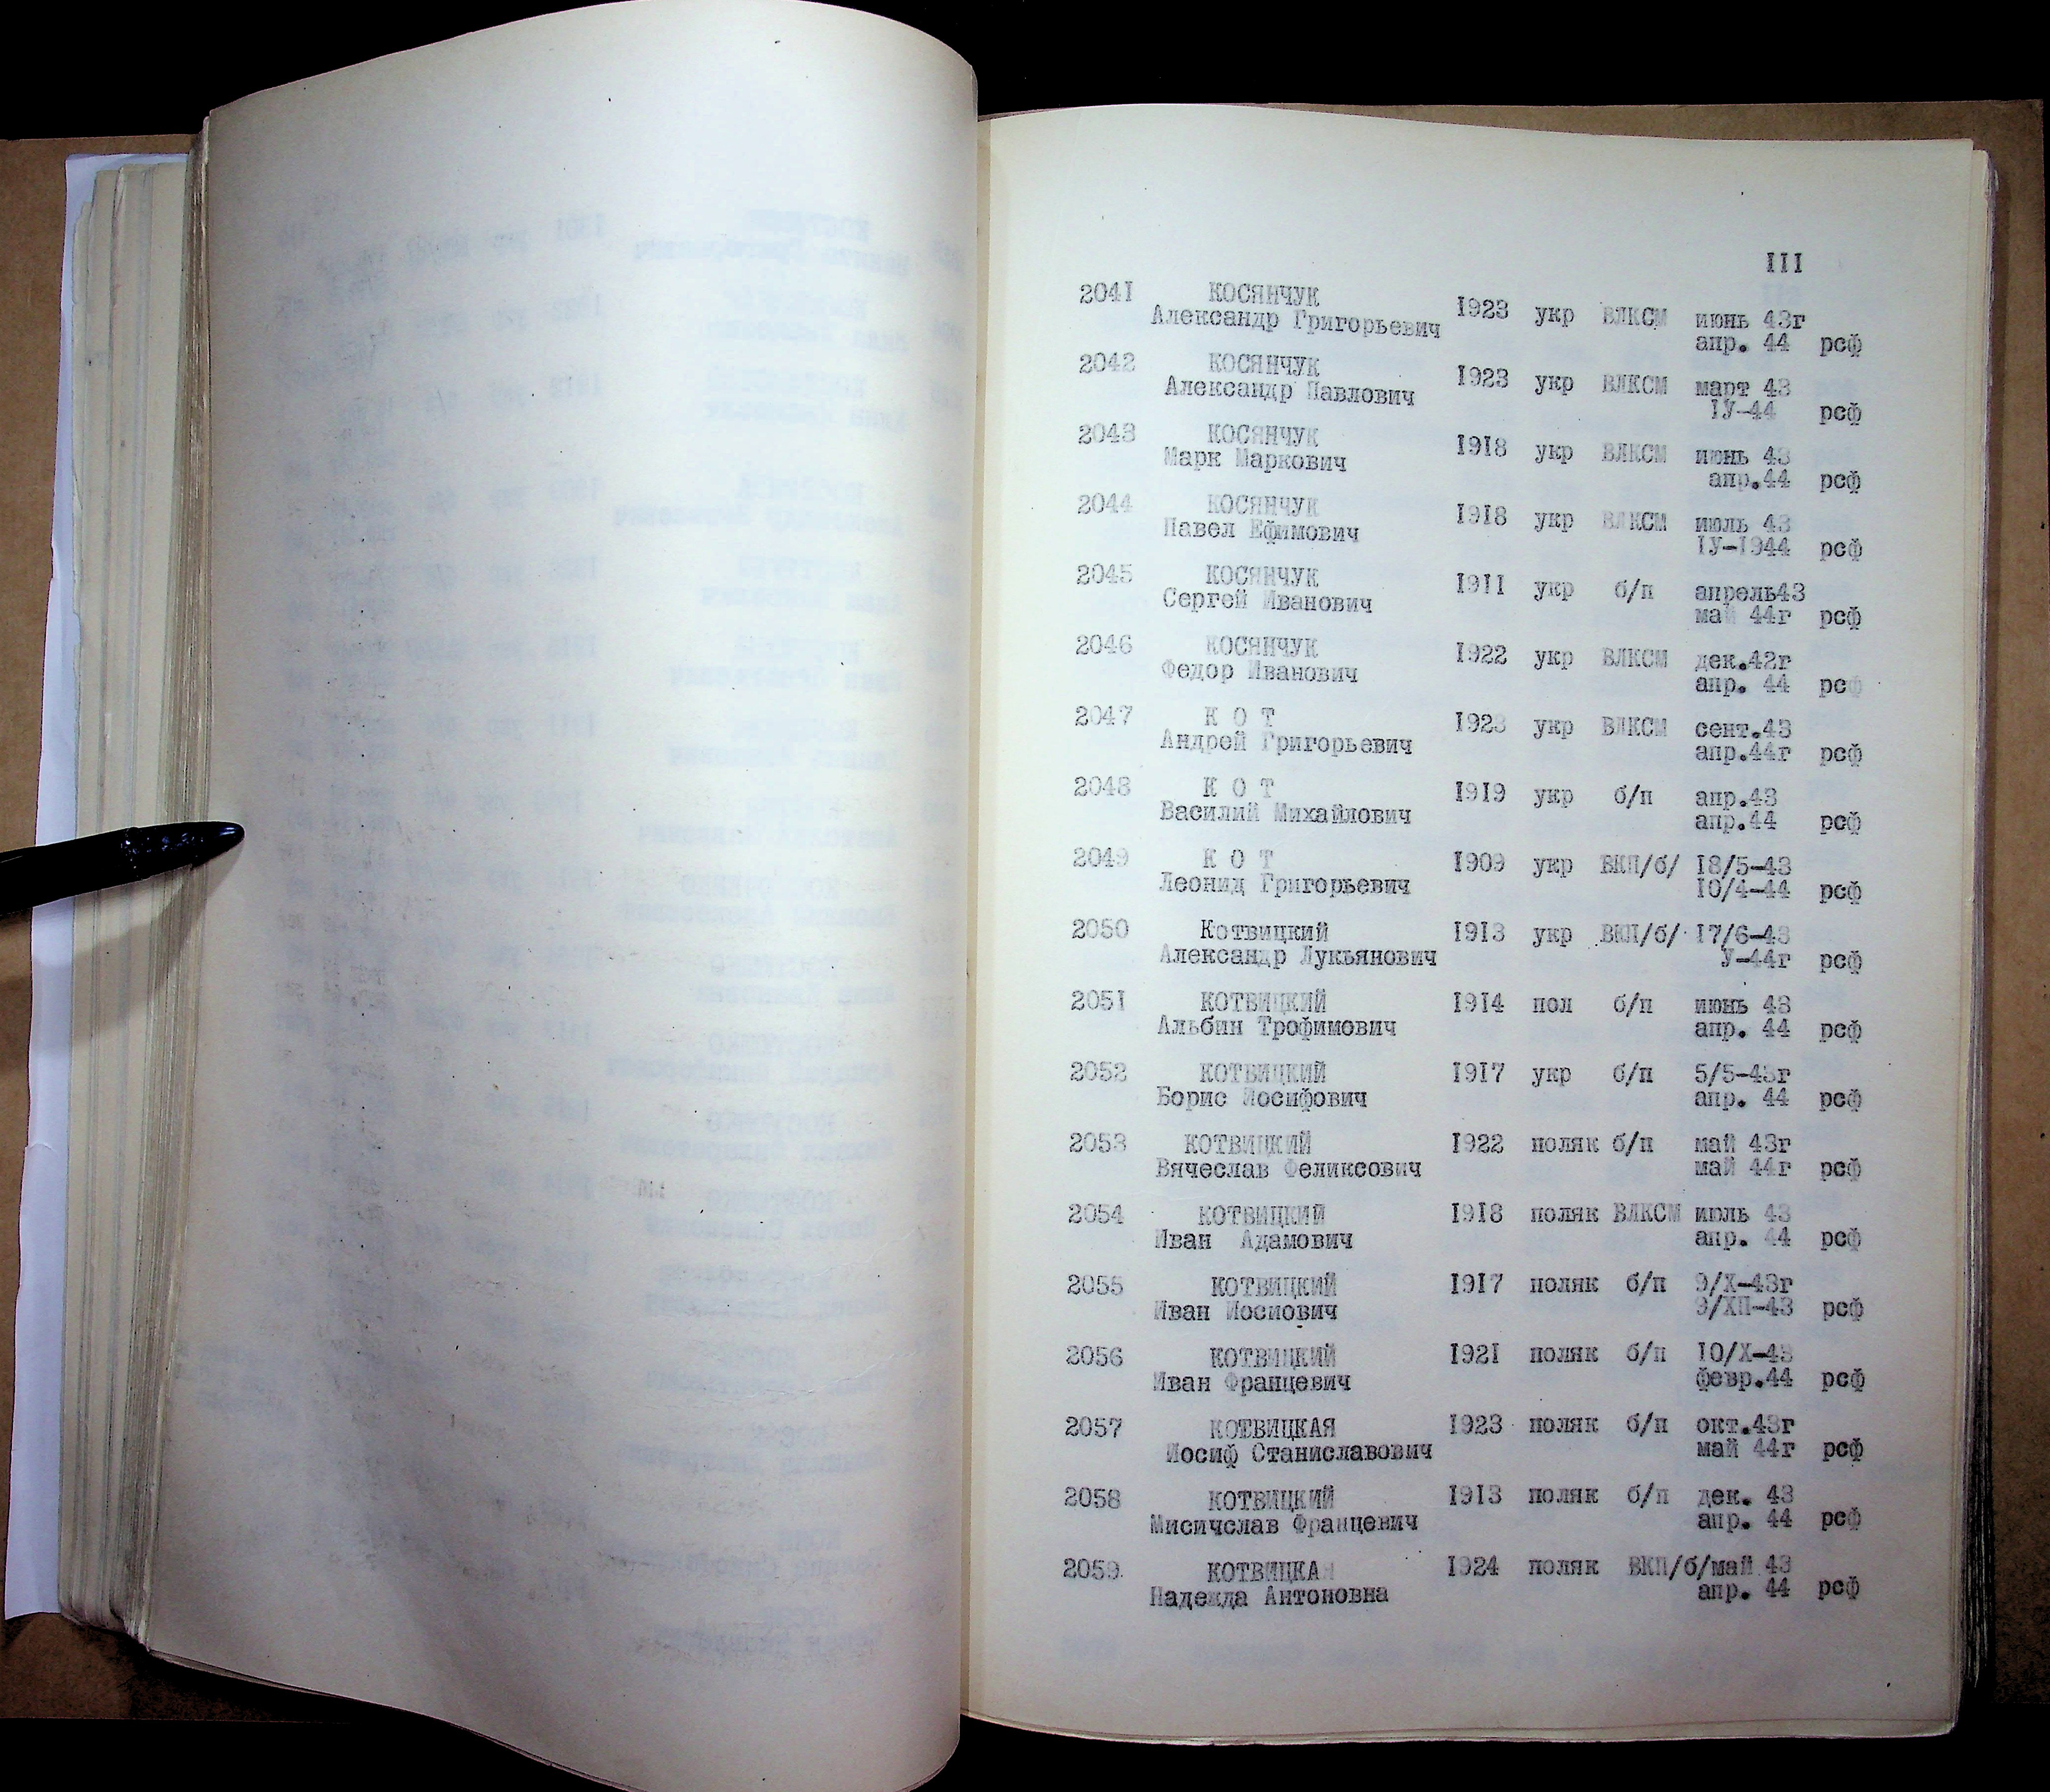 III
2041 КОСЯНЧУК 1923 укр ВЛКСМ июнь 43г
Александр Григорьевич апр. 44 рсф
2042 КОСЯНЧУК 1923 укр ВЛКСМ март 43
Александр Павлович IУ-44 рсф
2043 КОСЯНЧУК 1918 укр ВЛКСМ июнь 43
Марк Маркович апр.44 рсф
2044 КОСЯНЧУК 1918 укр ВЛКСМ июль 43
Павел Ефимович IУ-1944 рсф
2045 КОСЯНЧУК 1911 укр б/п апрель43
Сергей Иванович май 44г рсф
2046 КОСЯНЧУК 1922 укр ВЛКСМ дек.42г
Федор Иванович апр. 44 рсф
2047 К О Т 1923 укр ВЛКСМ сент.43
Андрей Григорьевич апр.44г рсф
2048 К О Т 1919 укр б/п апр.43
Василий Михайлович апр.44 рсф
2049 К О Т 1909 укр ВКП/б/ 18/5-43
Леонид Григорьевич 10/4-44 рсф
2050 Котвицкий 1913 укр ВКП/б/ 17/6-43
Александр Лукьянович У-44г рсф
2051 КОТВИЦКИЙ 1914 пол б/п июнь 43
Альбин Трофимович апр. 44 рсф
2052 КОТВИЦКИЙ 1917 укр б/п 5/5-43г
Борис Иосифович апр. 44 рсф
2053 КОТВИЦКИЙ 1922 поляк б/п май 43г
Вячеслав Феликсович май 44г рсф
2054 КОТВИЦКИЙ 1918 поляк ВЛКСМ июль 43
Иван Адамович апр. 44 рсф
2055 КОТВИЦКИЙ 1917 поляк б/п 9/Х-43г
Иван Иосиович 9/ХП-43 рсф
2056 КОТВИЦКИЙ 1921 поляк б/п 10/Х-43
Иван Францевич февр.44 рсф
2057 КОТВИЦКАЯ 1923 поляк б/п окт.43г
Иосиф Станиславович май 44г рсф
2058 КОТВИЦКИЙ 1913 поляк б/п дек. 43
Мисичслав Францевич апр. 44 рсф
2059 КОТВИЦКАЯ 1924 поляк ВКП/б/май 43
Надежда Антоновна апр. 44 рсф